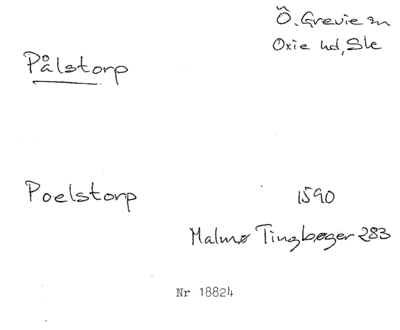 Ö. Grevie sn
Oxie hd, Sk
Pålstorp
Poelstorp 1590
Malmø Tingbøger 283
Nr 18824